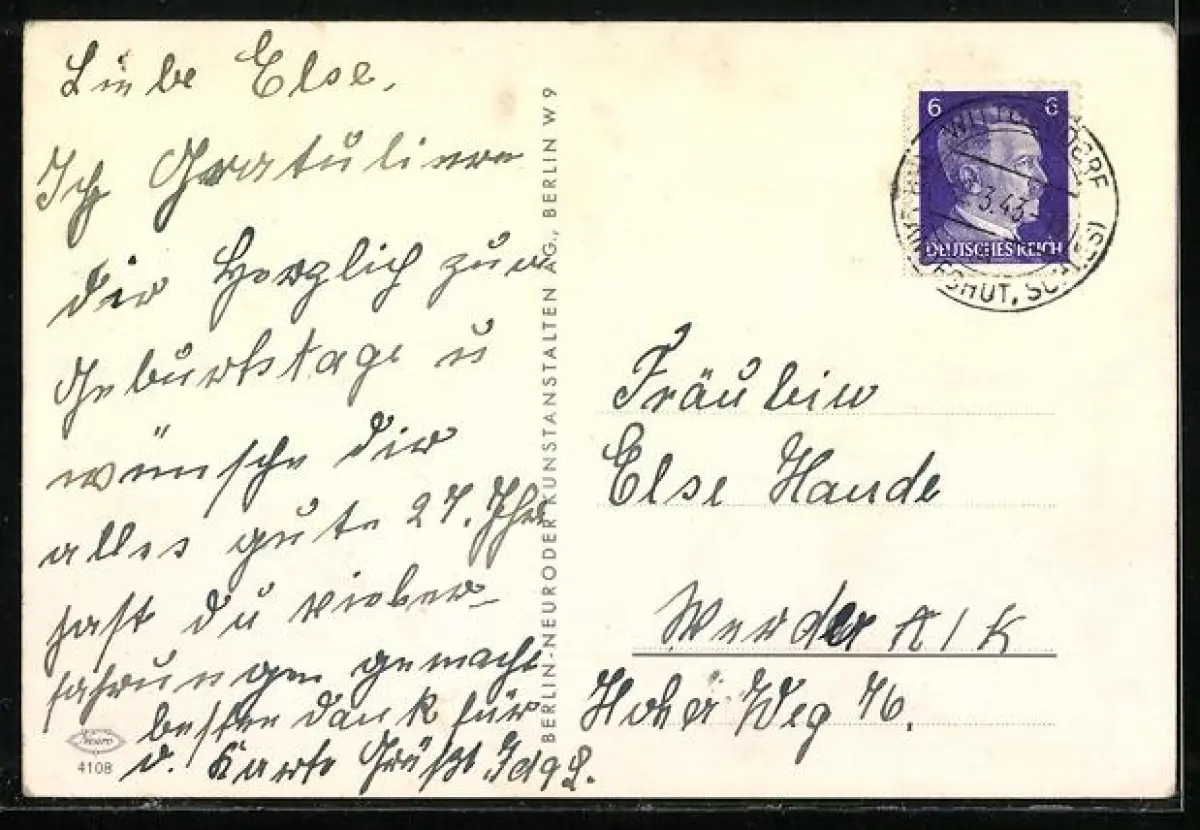 Liebe Else,
Ich Gratuliere
dir Herzlich zum
Geburtstage u
wünsche dir
alles gute 27. Jhr
hast du
fahrungen gemacht
besten dank für
d. Karte Grüßt
Neuro
4108
BERLIN-NEURODER KUNSTANSTALTEN A.G., BERLIN W 9
6 6
DEUTSCHES REICH
3.43
Fräulein
Else Hande
Werder A/K
Hoher Weg 76.